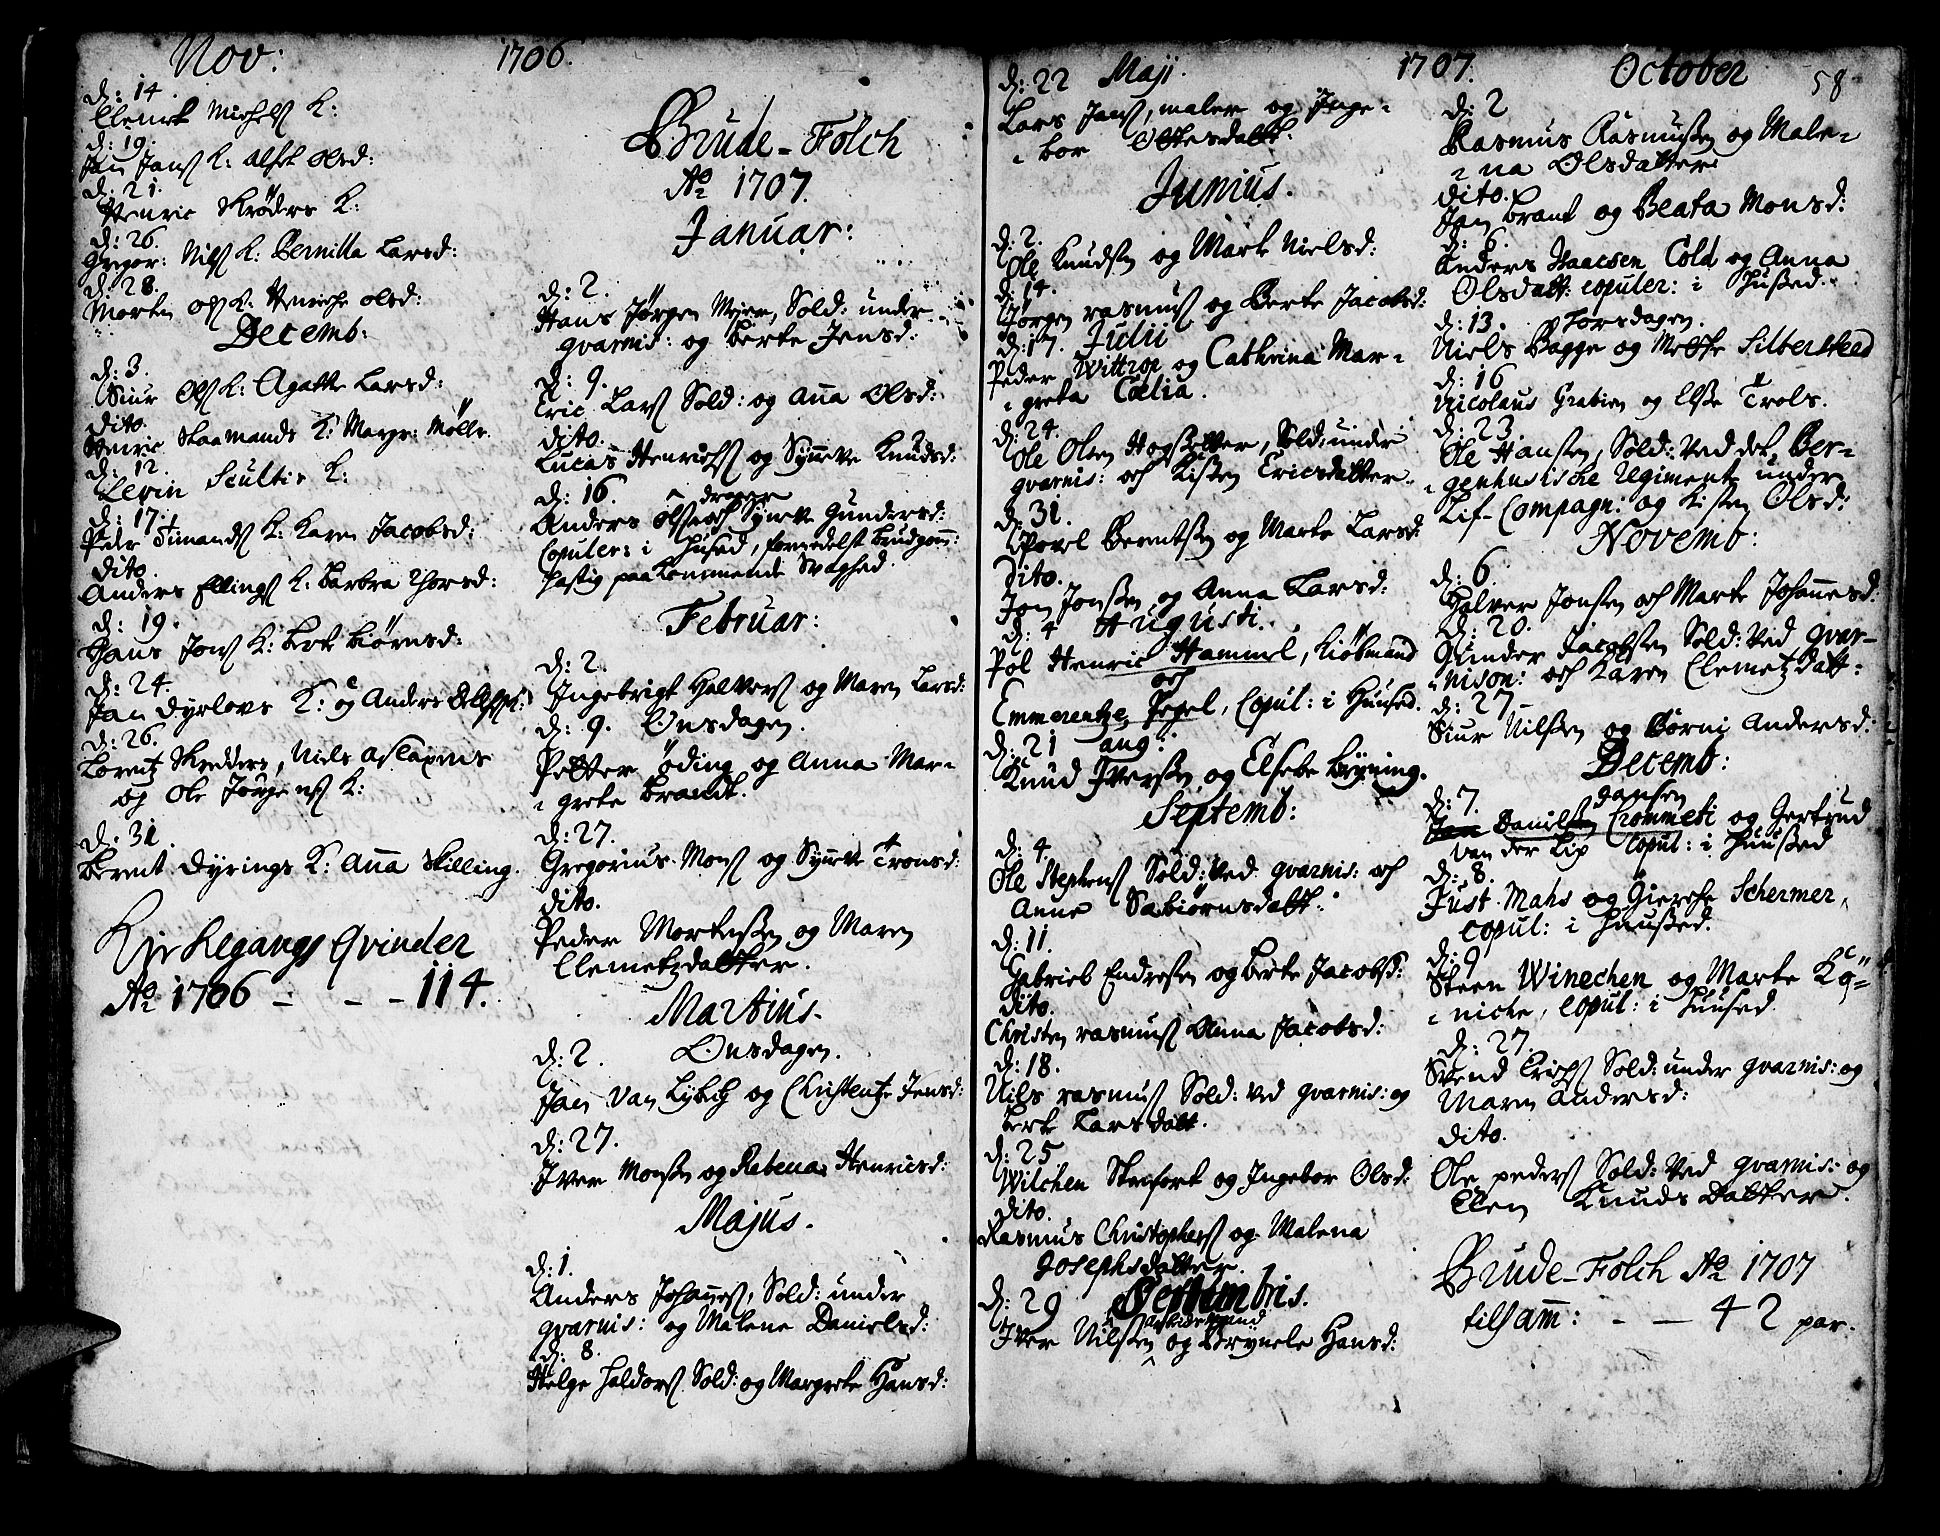 Nov: 1706.
d: 14.
Clemet Michels K:
d: 19.
Jan Jans K: Alhet Olsd:
d: 21.
Henric Skrøders K:
d: 26.
Gregor: Nils K: Pernilla Larsd:
d: 28.
Morten Ols K: Henriche Olsd:
Decemb:
d: 3.
Siur Ols K: Agatte Larsd:
dito.
Henric Staamands K: Margr: Mølle.
d: 12.
Levin Scultis K:
d: 17.
Peder Timands K: Karen Jacobsd:
dito.
Anders Ellings K: Barbra Thorsd:
d: 19.
Hans Jons K: Berte Biørnsd:
d: 24.
Jan Dyrlovs K: og Anders
d: 26.
Lorentz Skredders, Niels Aslaxens
og Ole Jørgens K:
d: 31.
Berent Dyrings K: Anna Skilling.
Kirkegangs Qvinder
Ao 1706 - - - 114.
Brude-Folch
Ao 1707.
Januar:
d: 2.
Hans Jørgen Meyer, Sold: under
gvarnis: og Berte Jensd:
d: 9.
Eric Lars Sold: og Anna Olsd:
dito.
Lucas Henrichs og Synneve Knudsd:
d: 16. drager
Anders Olsen och Synneve Gundersd:
Copuler: i Huused, formedelst Brudgom:
hastig paakommende Svaghed.
Februar:
d: 2.
Ingebrigt Halvers og Maren Larsd:
d: 9. Onsdagen.
Petter Øding og Anna Mar-
grete Brandt.
d: 27.
Gregorius Mons og Synneve Tronsd:
dito.
Peder Mortensen og Maren
Clemetzdatter.
Martius.
d: 2. Onsdagen.
Jan Van Lybch og Christentze Jensd:
d: 27.
Iver Monsen og Rebecca Henricsd:
Majus.
d: 1.
Anders Johannes, Sold: under
gvarnis: og Malene Danielsd:
d: 8.
Helge Haldors Sold: og Margrete Hansd:
1707. 58
d: 22 Maji.
Lars Jans, maler og Inge-
bor Ottesdatt:
Junius.
d: 2.
Ole Knudsen og Marte Nielsd:
d: 14.
Jørgen rasmus og Berte Jacobsd:
d: 17. Julii
Peder Wittrop og Cathrina Mar-
greta Cælia.
d: 24.
Ole Olsen Hogsetter, Sold: under
gvarnis: och Kisten Ericsdatter.
d: 31.
Povel Berentsen og Marte Larsd:
Dito.
Jon Jonsen og Anna Larsd:
d: 4 Augusti.
Pol Henric Hammel, Kiøbmand
och
Emmerentze Pegel, Copul: i Huused.
d: 21 aug:
Knud Iversen og Elsebe Bryning.
Septemb:
d: 4.
Ole Stephens Sold: ved gvarnis: och
Anne Sabiørnsdatt:
d: 11.
Gabriel Endresen og Berte Jacobsd:
dito.
Christen rasmus Anna Jacobsd:
d: 18.
Nils rasmus Sold: ved gvarnis: og
Berte Larsdatt.
d: 25
Wilchen Stenfort og Ingebor Olsd:
dito.
Rasmus Christophers og Malena
Josephsdatter.
d: 29 Septembris.
Arbeidsmand
Iver Nilsen og Brynele Hansd:
October
d: 2
Rasmus Rasmussen og Male-
na Olsdatter
dito.
Jan Brant og Beata Monsd:
d: 6.
Anders Isacsen Cold og Anna
Olsdatt: copuler: i Hussed.
d: 13. Torsdagen.
Niels Bagge og Mette Silbersteed
d: 16
Nicolaus Grabien og Else Trols.
d: 23.
Ole Hansen, Sold: Ved det Ber-
genhusische Regiment under
Lif-Compagn: og Kisten Olsd:
Novemb:
d: 6.
Halver Jonsen och Marte Johannesd:
d: 20.
Gunder Jacobsen Sold: Ved gvar-
nison: och Karen Clemetzdatt:
d: 27.
Siur Nilssen og Børni Andersd:
Decemb:
d: 7. Jansen
Jan Danilsen Crommeti og Gertrud
van der Lip Copul: i Huused
d: 8.
Just Mahs og Gierche Schermer,
copul: i Huused.
d: 9
Steen Winechen og Marte Kø-
niche, Copul: i Huused.
d: 27.
Svend Erichs Sold: under gvarnis: og
Maren Andersd:
dito.
Ole peders Sold: Ved gvarnis: og
Elen Knudsdatter.
Brude-Folch Ao 1707
tilsam: - - 42 par.